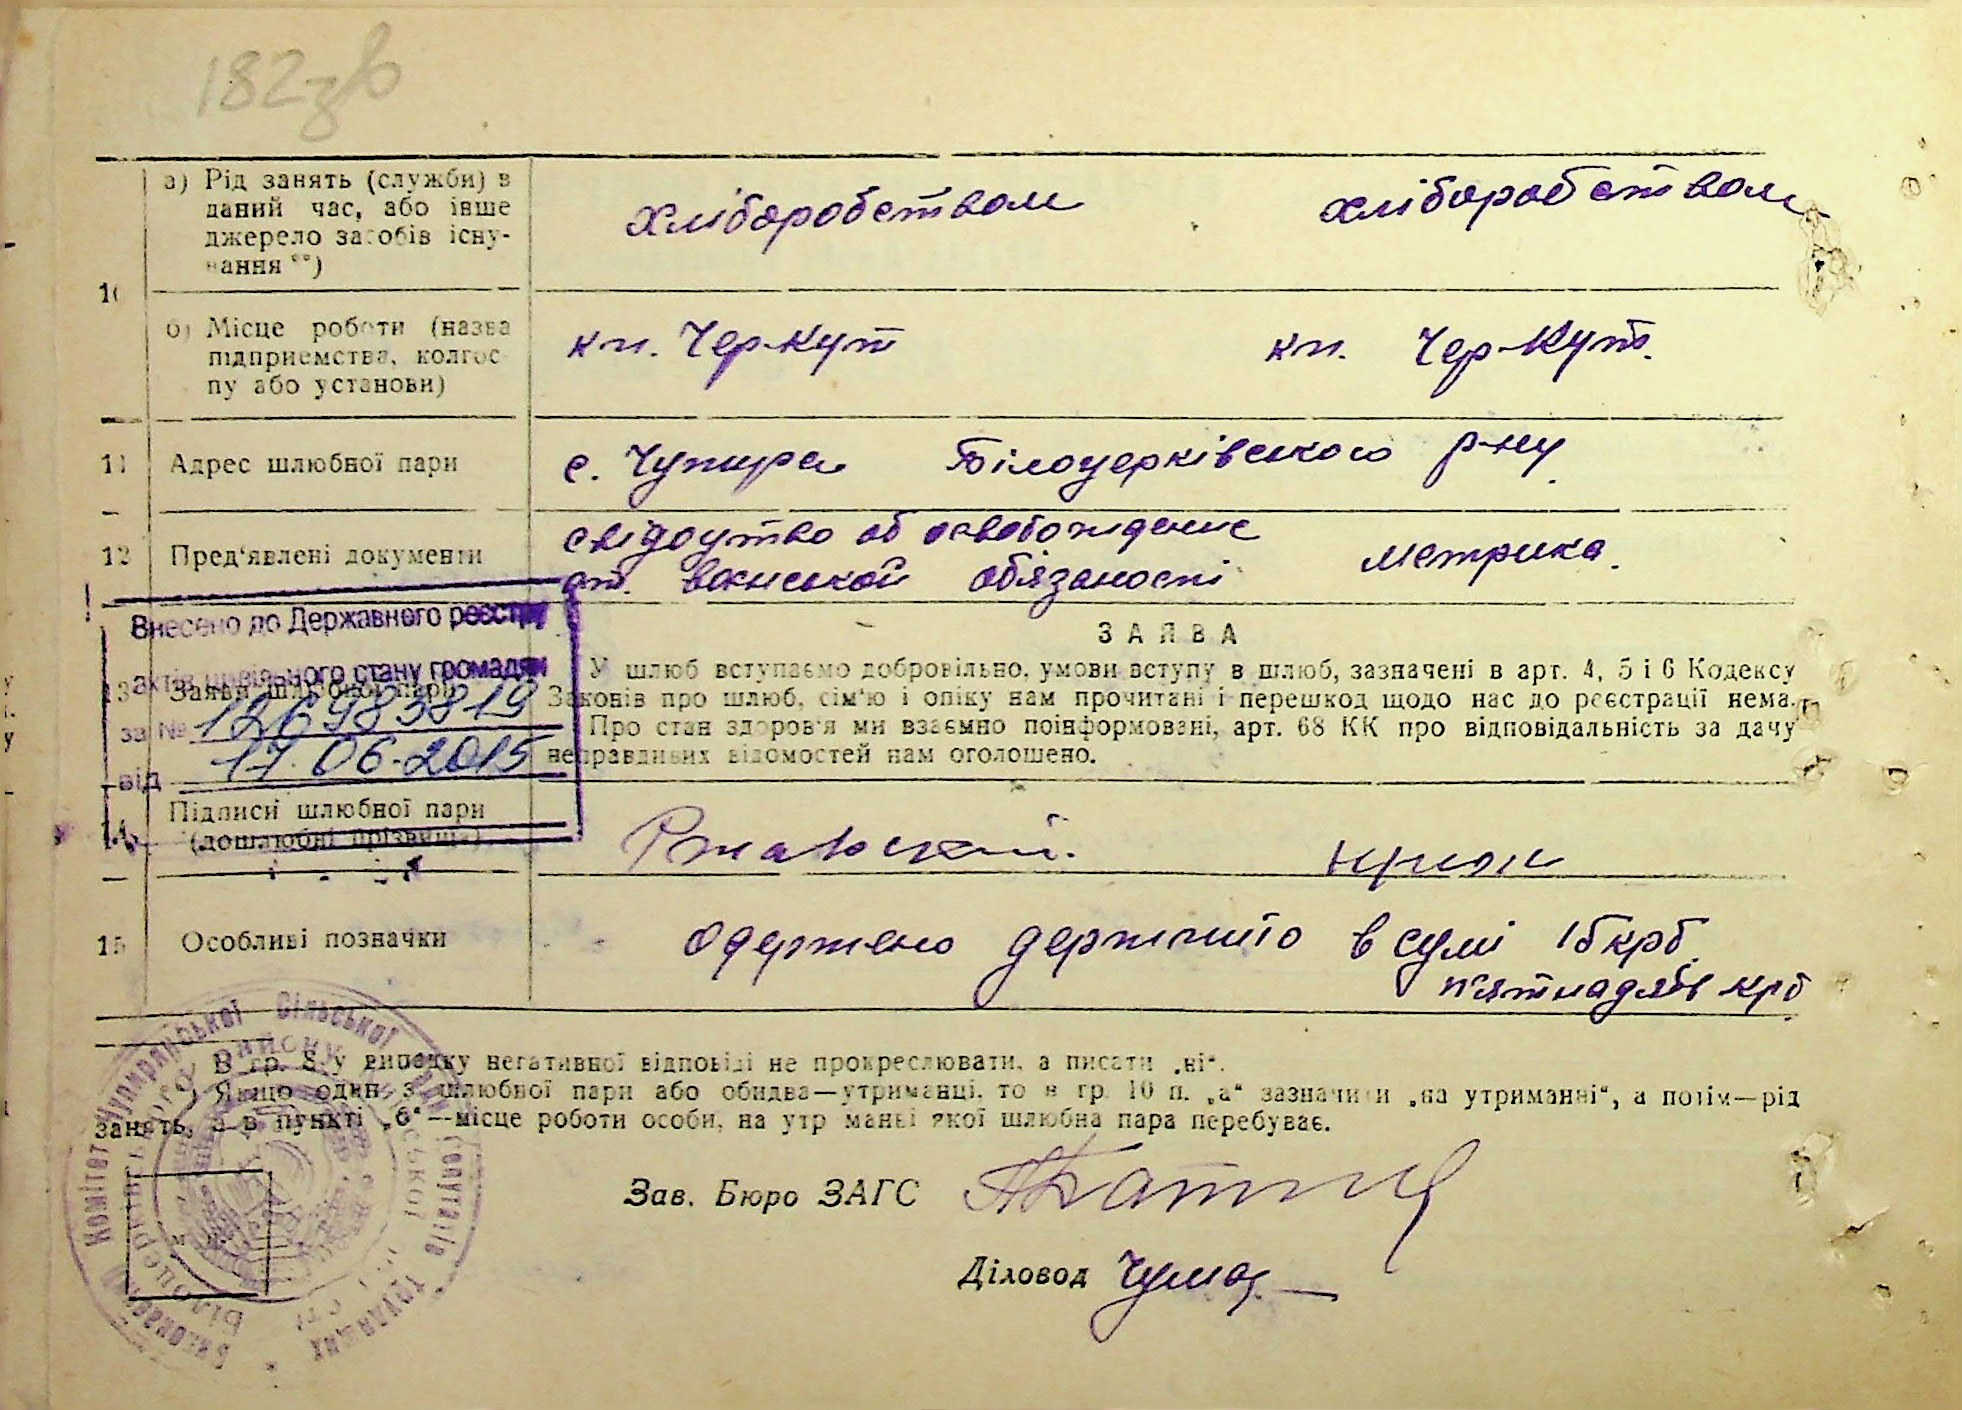 182 зв
а) Рід занять (служби) в
даний час, або інше
джерело засобів існу-
вання **)
хліборобством хліборобством
10
б) Місце роботи (назва
підприємства, колгос-
пу або установи)
кп. Чер-Кут кп. Чер-Кут.
11 Адрес шлюбної пари
с. Чупира Білоцерківського р-ну.
12 Пред'явлені документи
свідоцтво об освобождение
от. воинської обязаності метрика.
Внесено до Державного реєстру
актів цивільного стану громадян
за № 126983819
від 17.06.2015
13 Заяви шлюбної пари
ЗАЯВА
У шлюб вступаємо добровільно, умови вступу в шлюб, зазначені в арт. 4, 5 і 6 Кодексу
Законів про шлюб, сім'ю і опіку нам прочитані і перешкод щодо нас до реєстрації нема.
Про стан здоров'я ми взаємно поінформовані, арт. 68 КК про відповідальність за дачу
неправдивих відомостей нам оголошено.
14 Підписи шлюбної пари
(дошлюбні прізвища)
Ржавский.
15 Особливі позначки
Одержено держмито в сумі 15 крб.
п'ятнадять крб
В гр. 8-у випадку негативної відповіді не прокреслювати, а писати „ні“.
Якщо один з шлюбної пари або обидва—утриманці, то в гр. 10 п. „а“ зазначити „на утриманні“, а потім—рід
занять, а в пункті „б“—місце роботи особи, на утриманні якої шлюбна пара перебуває.
Зав. Бюро ЗАГС
Діловод
Виконавчий Комітет Чупирянської Сільської Ради Депутатів Трудящих
М